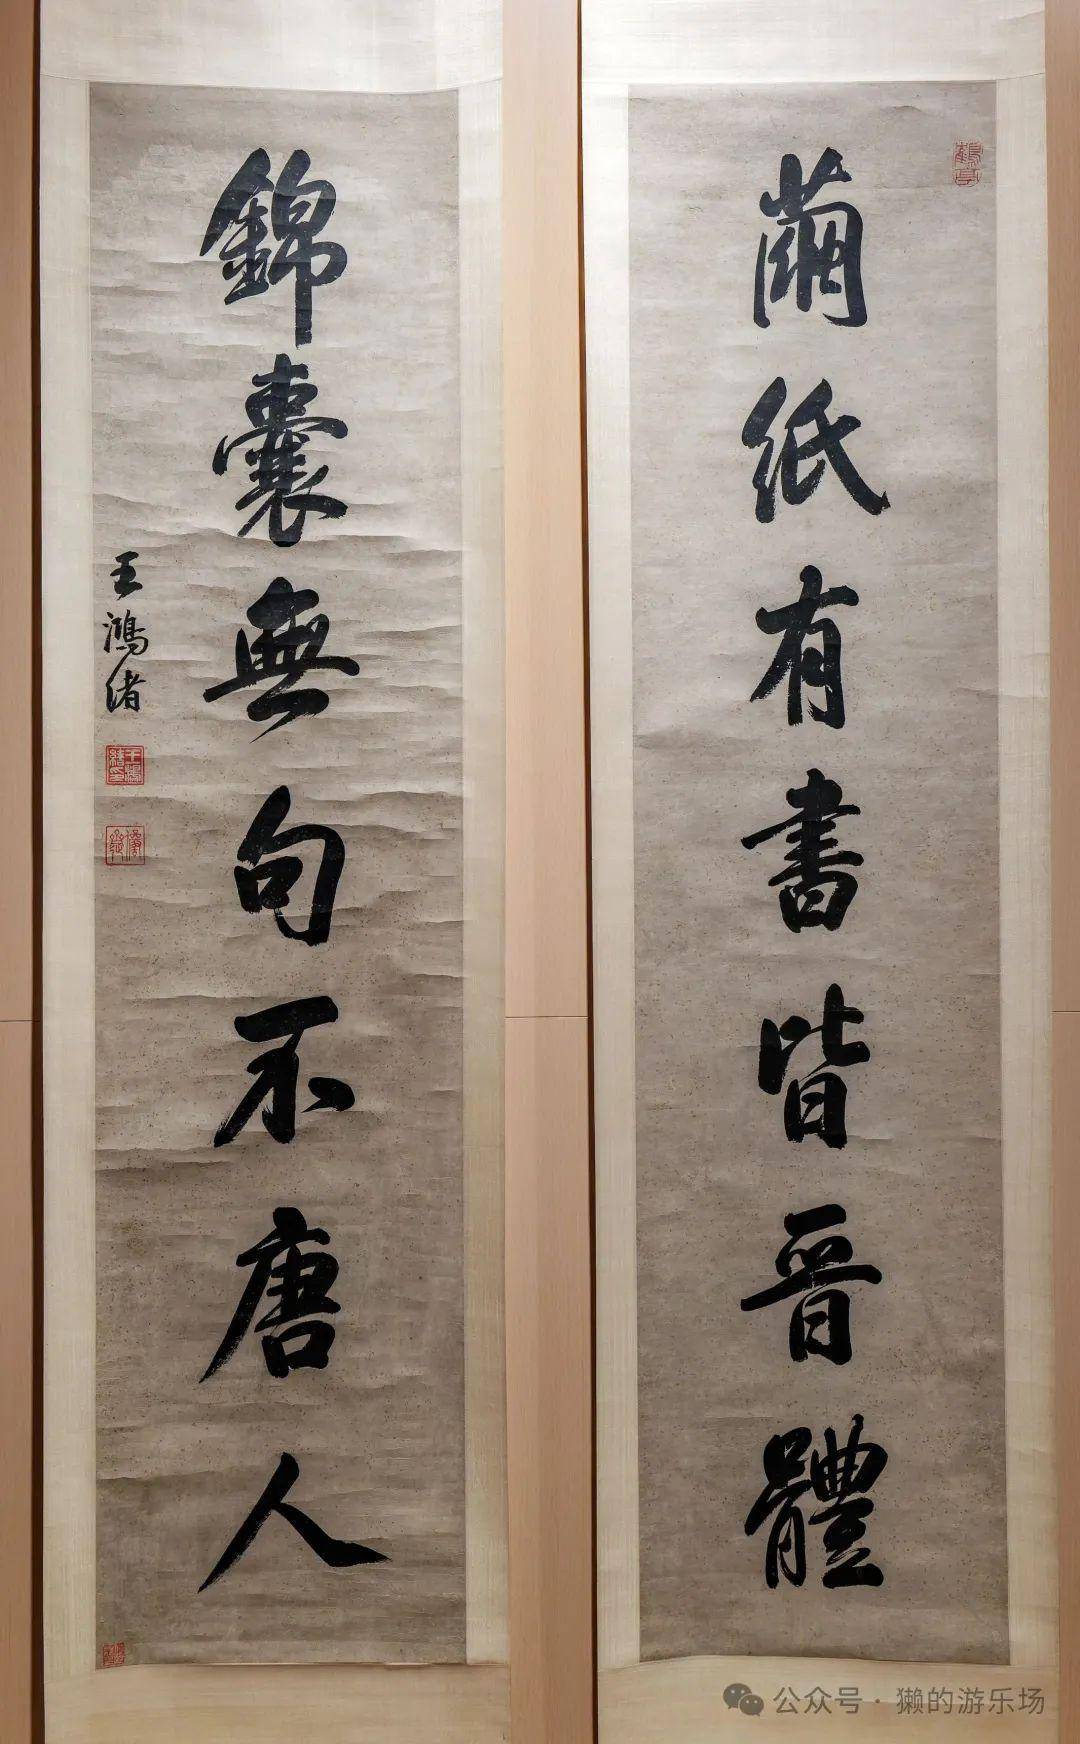 繭紙有書皆晉體
錦囊無句不唐人
王鴻緒
鶴亭
王鴻緒印
公众号·獭的游乐场